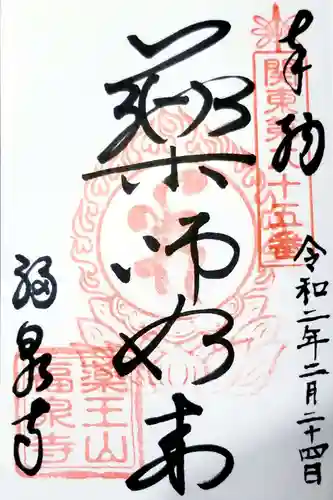 奉拝
関東第二十五番
令和二年二月二十四日
薬師如来
福泉寺
薬王山
福泉寺